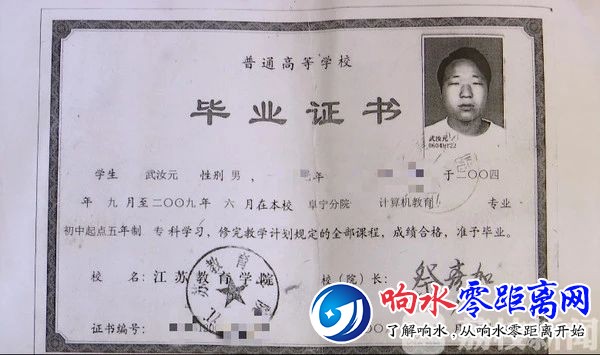 普通高等学校
毕业证书
武汝元
学生 武汝元 性别 男, 年 于二〇〇四
年 九 月至 二〇〇九 年 六 月在本校 阜宁分院 计算机教育 专业
初中起点五年制 专 科学习,修完教学计划规定的全部课程,成绩合格,准予毕业。
校 名:江苏教育学院 校(院)长:
证书编号:
响水零距离网
了解响水,从响水零距离开始